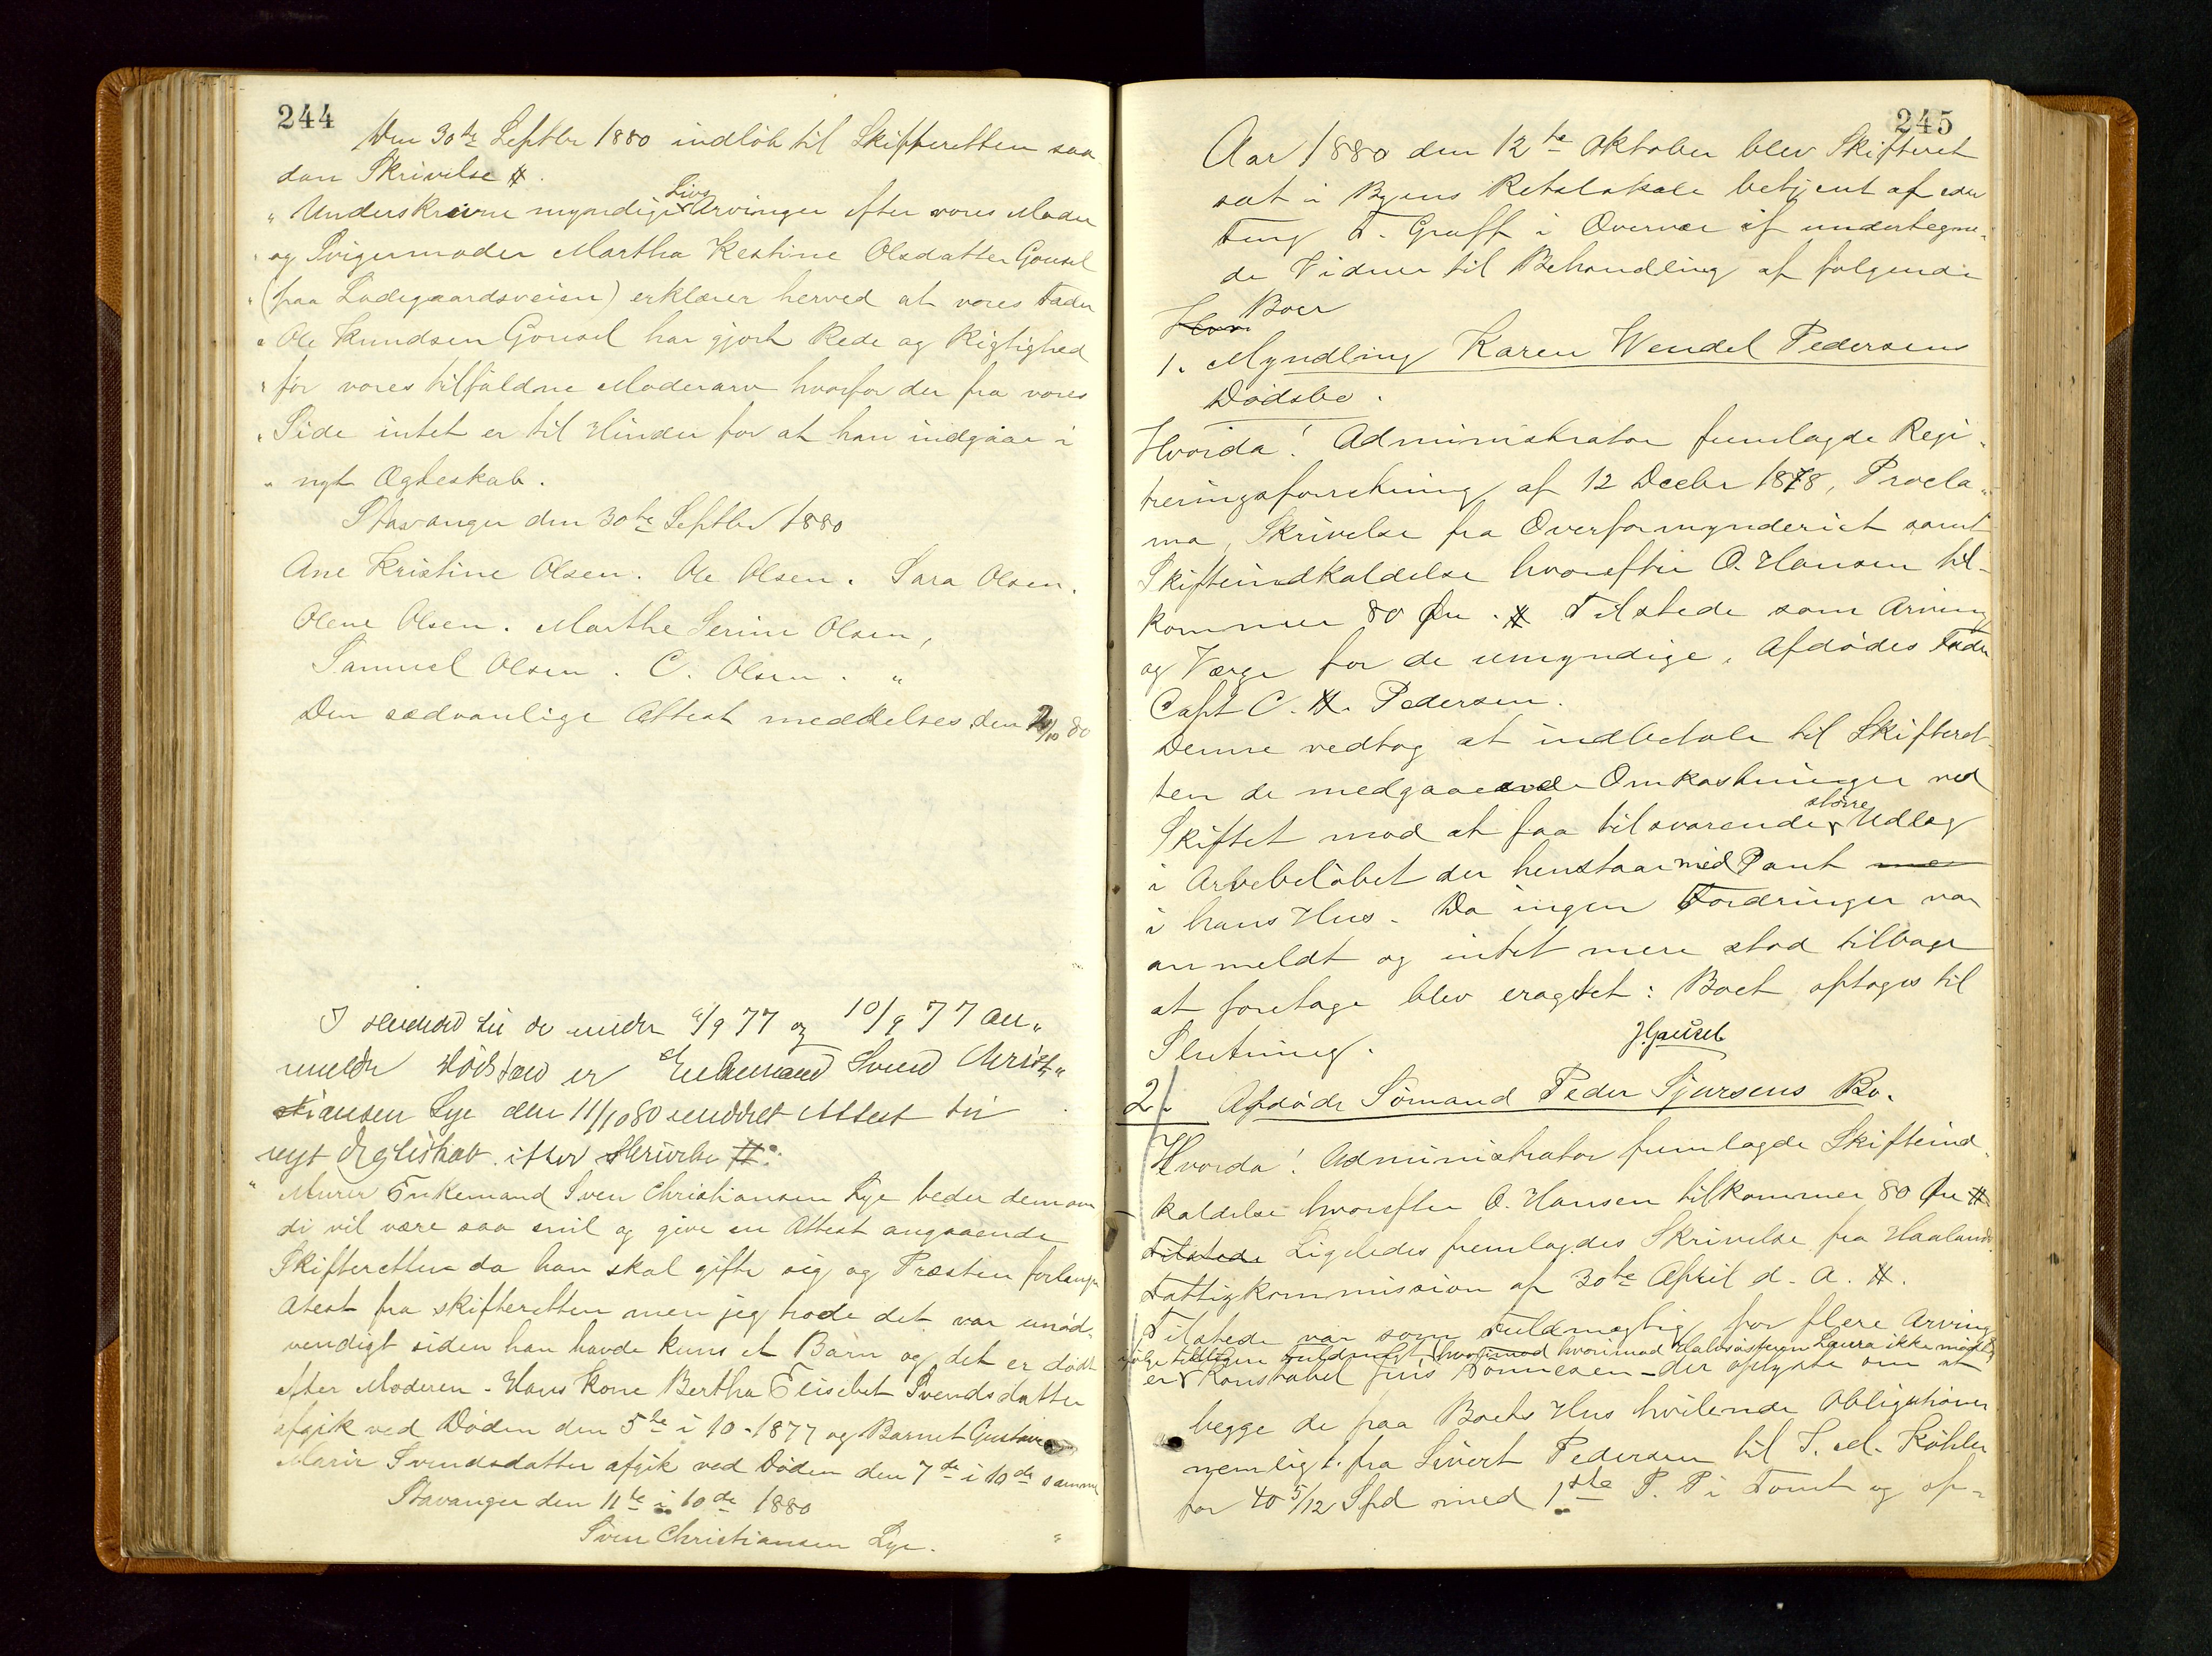 244
Den 30te Septbr 1880 indløb til Skifteretten saa
dan Skrivelse #.
" Underskrevne myndige Livs Arvinger efter vores Moder
" og Svigermoder Martha Kestine Olsdatter Gousel
" (paa Ladegaardsveien) erklærer herved at vores Fader
" Ole Knudsen Gousel har gjort Rede og Rigtighed
" for vores tilfaldne Moderarv hvorfor der fra vores
" Side intet er til Hinder for at han indgaar i
" nyt Ægteskab.
Stavanger den 30te Septbr 1880
Ane Kristine Olsen. Ole Olsen. Sara Olsen.
Olene Olsen. Marthe Serine Olsen,
Samuel Olsen. C. Olsen. "
Den sædvanlige Attest meddeltes den 2/10 80
I Henhold til de under /9 77 og 10/9 77 an"
meldte Dødsfald er Enkemand Svend Christ"
stiansen Lye den 11/10 80 meddelt Attest til
nyt Ægteskab efter Skrivelse #:
" Murer Enkemand Sven Christiansen Lye beder dem om
di vil være saa snil og give en Attest angaaende
Skifteretten da han skal gifte sig og Præsten forlanger
Atest fra skifteretten men jeg trode det var unød-
vendigt siden han havde kuns et Barn og det er dødt
efter Moderen. Hans Kone Bertha Elisebet Svendsdatter
afgik ved Døden den 5te i 10-1877 og Barnet Gustava
Marie Svendsdatter afgik ved Døden den 7de i 10de samme
Stavanger den 11te i 10de 1880
Sven Christiansen Lye. "
245
Aar 1880 den 12te Oktober blev Skifteret
sat i Byens Retslokale betjent af edsv
Fmg F. Graff i Overvær af undertegne-
de Vidner til Behandling af følgende
Boer
1. Myndling Karen Wendel Pedersens
Dødsbo.
Hvorda! Administrator fremlagde Regi-
treringsforretning af 12 Decbr 1878, Procla-
ma, Skrivelse fra Overformynderiet samt
Skifteindkaldelse hvorefter O. Hansen til-
kommer 80 Øre. # Tilstede som Arving
og Værge for de umyndige, Afdødes Fader
Capt C. H. Pedersen.
Denne vedtog at indbetale til Skifteret-
ten de medgaaende Omkostninger ved
Skiftet mod at faa tilsvarende større Udlæg
i Arvebeløbet der henstaar med Pant
i hans Hus. Da ingen Fordringer var
anmeldt og intet mere stod tilbage
at foretage blev eragtet: Boet optages til
Slutning.
2. Afdøde Sømand Peder Sjursens Bo.
Hvorda! Administrator fremlagde Skifteind-
kaldelse hvorefter O. Hansen tilkommer 80 Øre #
Tilstede Ligeledes fremlagdes Skrivelse fra Haalands
Fattigkommission af 30te April d. A. #.
Tilstede var som Fuldmægtig for flere Arving
ifølge tidligere Fuldmagt hvorimod hvorimod Halvsøsteren Laura ikke mødte
er Konstabel Tønnesen - der oplyste om at
begge de paa Boets Hus hvilende Obligationer
nemlig 1. fra Sivert Pedersen til S. M. Køhler
for 40 5/12 Spd med 1ste P. P i Tomt og op-